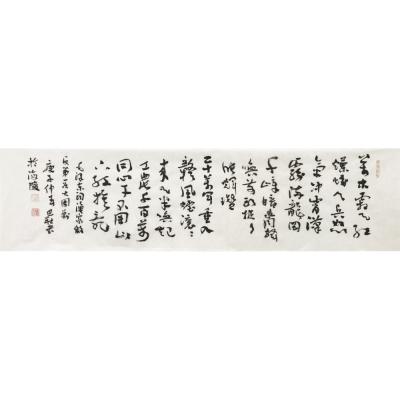 萬木霜天红
爛漫天兵怒
氣冲霄漢
霧满龍岡
千嶂暗齊聲
唤前頭捉了
張輝瓚
二十萬軍重入
贛風煙滚滚
来天半唤起
工農千百萬
同心干不周山
下红旗亂
毛泽东詞漁家傲
反第一次大圍剿
庚子仲春
於海陵